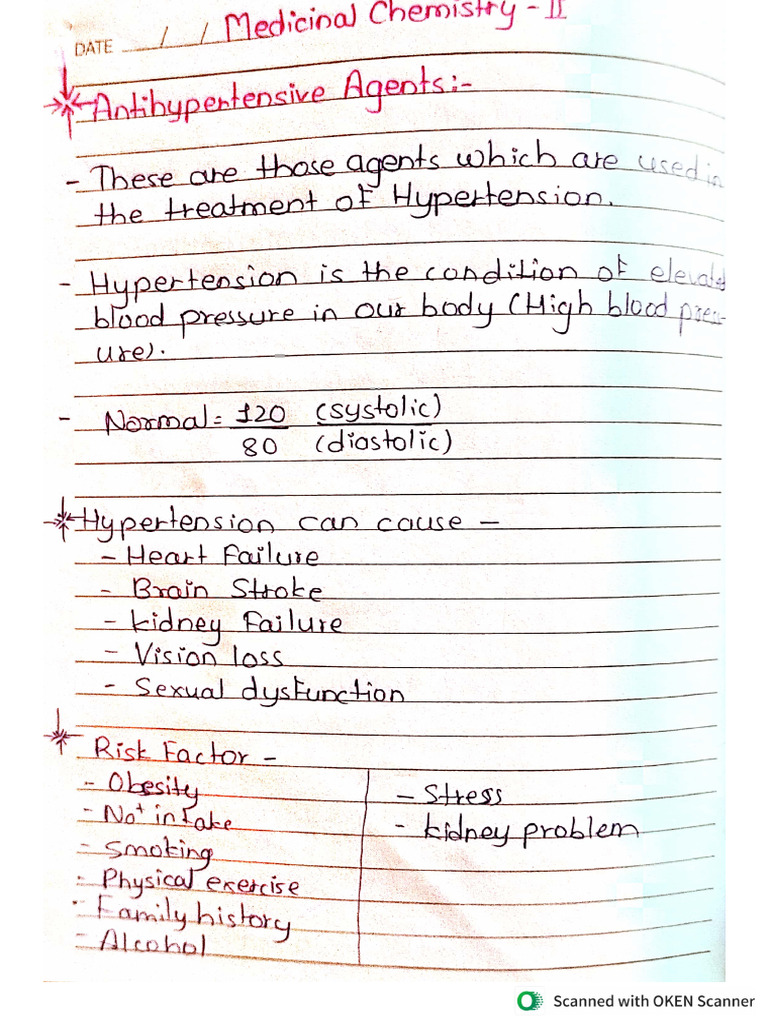 Medicinal Chemistry - II
DATE / /
Antihypertensive Agents:-
- These are those agents which are used in
the treatment of Hypertension.
- Hypertension is the condition of elevated
blood pressure in our body (High blood press-
ure).
- Normal = 120 (systolic)
80 (diastolic)
Hypertension can cause -
- Heart Failure
- Brain Stroke
- kidney Failure
- Vision loss
- Sexual dysfunction
Risk Factor -
- Obesity
- Na+ intake
- Smoking
- Physical exercise
- Family history
- Alcohol
- Stress
- kidney problem
Scanned with OKEN Scanner